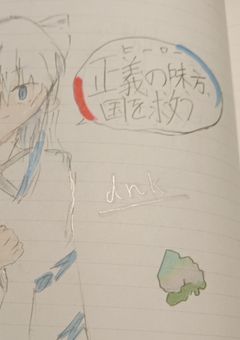 ヒーロー
正義の味方、
国を救う
ank